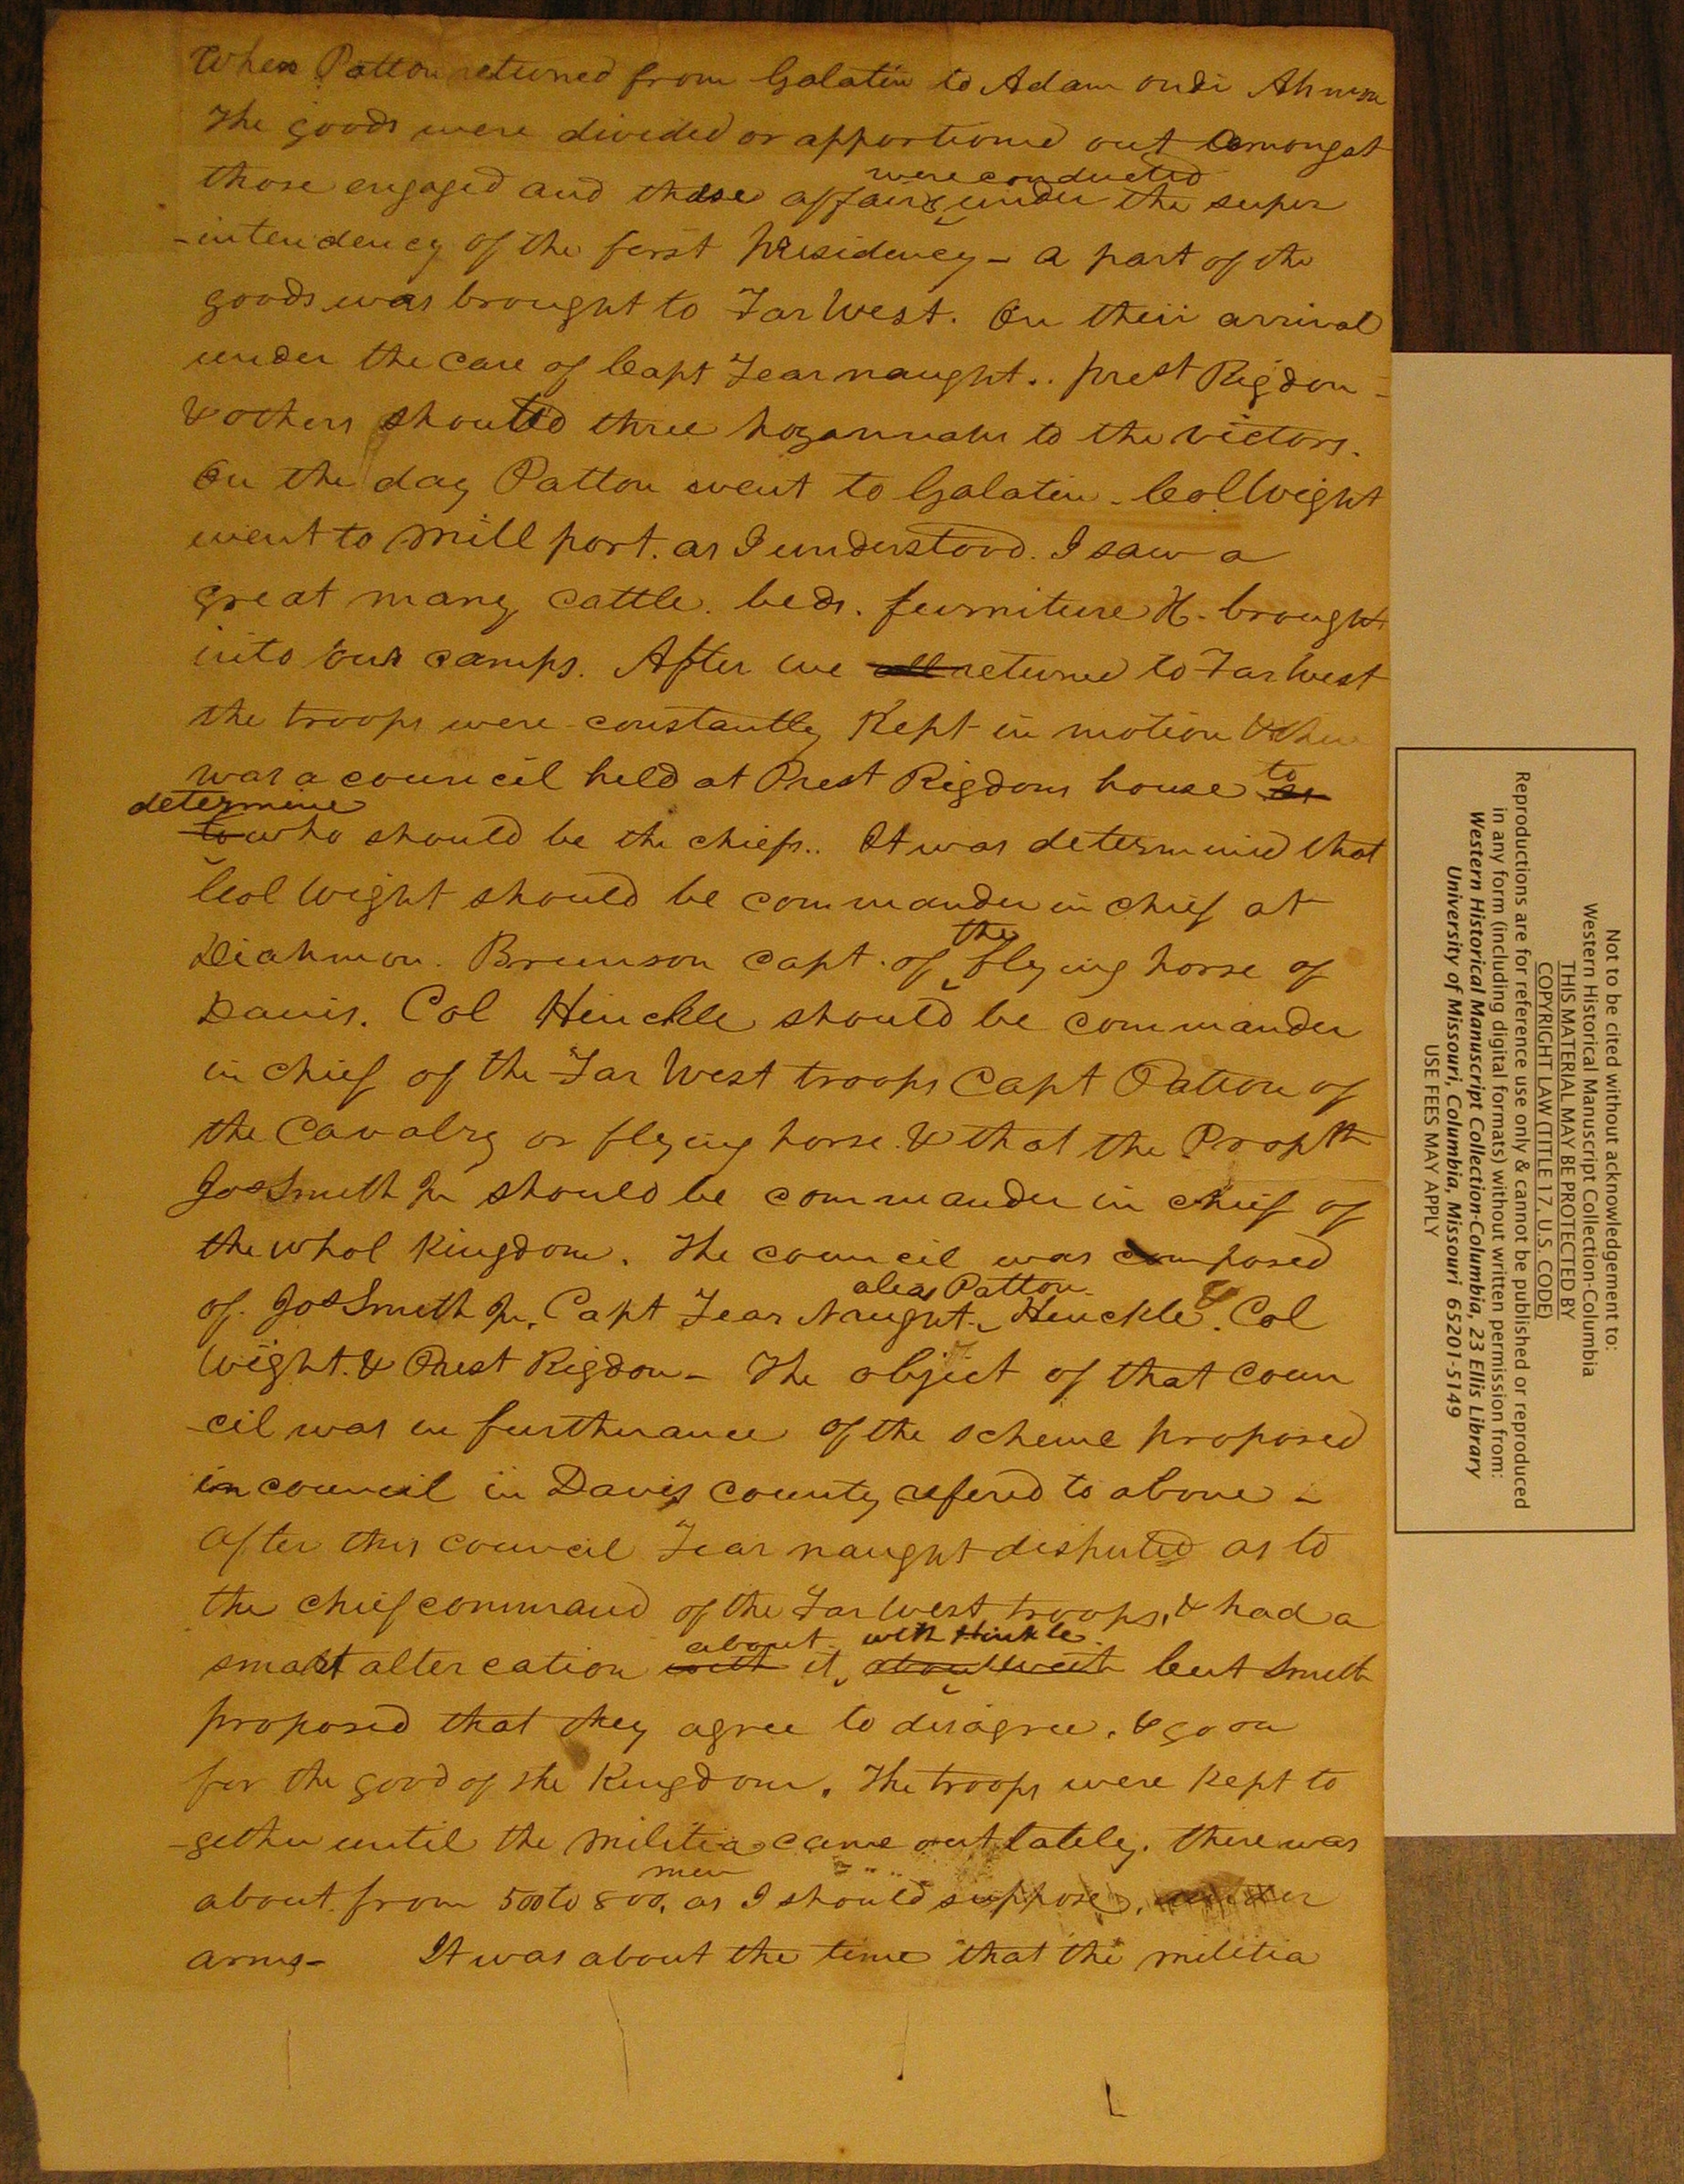 When Patton returned from Galatin to Adam ondi Ahmon
The goods were divided or apportioned out amongst
were conducted
those engaged and these affairs under the super
-intendency of the first presidency - a part of the
goods was brought to Far West. On their arrival
under the care of Capt Fearnaught.. prest Rigdon -
& others shouted three hozannahs to the victors.
On the day Patton went to Galatin - Col Wight
went to Mill port. as I understood. I saw a
great many cattle. beds. furniture &c. brought
into our camps. After we all returned to Far West
the troops were constantly Kept in motion & there
was a council held at Prest Rigdons house to
determine
to who should be the chiefs.. It was determined that
Col Wight should be commander in chief at
the
Diahmon. Brunson capt. of flying horse of
Davis. Col Hinckle should be commander
in chief of the Far West troops Capt Patton of
the Cavalry or flying horse. & that the Propth
Jos Smith Jr should be commander in chief of
the whol Kingdom. The council was composed
alias Patton
of Jos Smith Jr. Capt Fear Naught. Hinckle & Col
Wight. & Prest Rigdon - The object of that coun
-cil was in furtherance of the scheme proposed
in council in Davis county refered to above -
After this council Fear naught disputed as to
the chief command of the Far West troops, & had a
about with Hinkle
smart altercation with it, but Smith
proposed that they agree to disagree. & go on
for the good of the Kingdom. The troops were kept to
-gether until the militia came out lately. there was
men
about from 500 to 800. as I should suppose, under
arms - It was about the time that the militia
Not to be cited without acknowledgement to:
Western Historical Manuscript Collection-Columbia
THIS MATERIAL MAY BE PROTECTED BY
COPYRIGHT LAW (TITLE 17, U.S. CODE)
Reproductions are for reference use only & cannot be published or reproduced
in any form (including digital formats) without written permission from:
Western Historical Manuscript Collection-Columbia, 23 Ellis Library
University of Missouri, Columbia, Missouri 65201-5149
USE FEES MAY APPLY